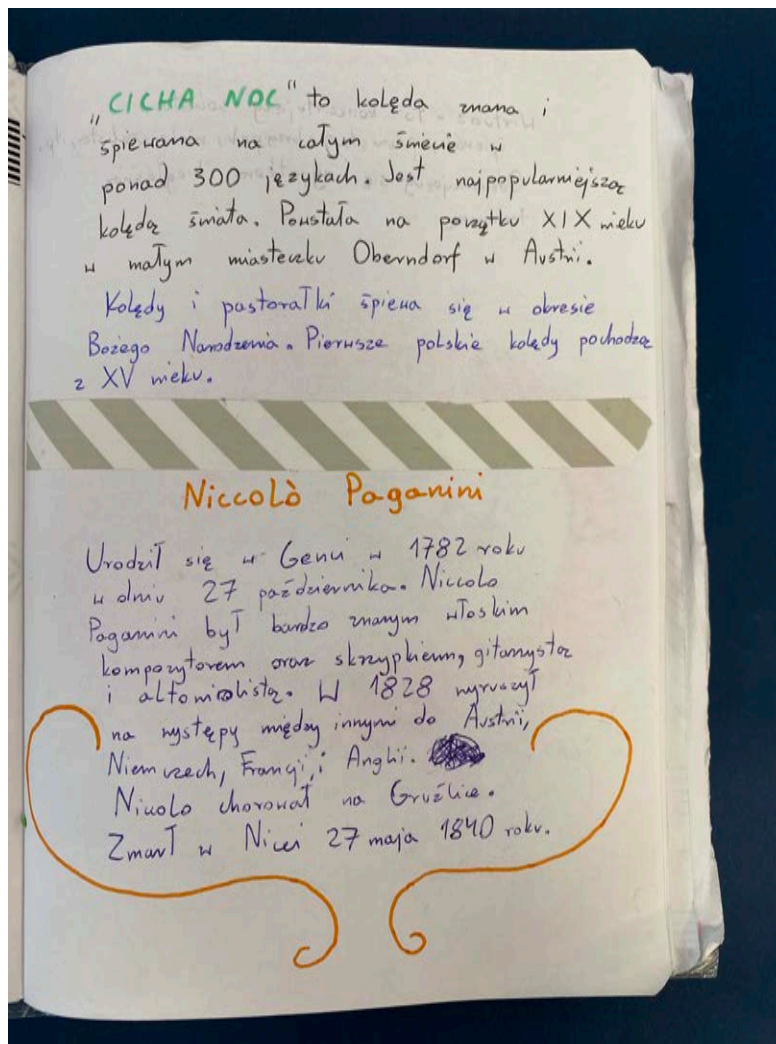 „CICHA NOC" to kolęda znana i
śpiewana na całym świecie w
ponad 300 językach. Jest najpopularniejszą
kolędą świata. Powstała na początku XIX wieku
w małym miasteczku Oberndorf w Austrii.
Kolędy i pastorałki śpiewa się w okresie
Bożego Narodzenia. Pierwsze polskie kolędy pochodzą
z XV wieku.
Niccolò Paganini
Urodził się w Genui w 1782 roku
w dniu 27 października. Niccolo
Paganini był bardzo znanym włoskim
kompozytorem oraz skrzypkiem, gitarzystą
i altowiolistą. W 1828 wyruszył
na występy między innymi do Austrii,
Niemczech, Francji, i Anglii.
Nicolo chorował na Gruźlice.
Zmarł w Nicei 27 maja 1840 roku.